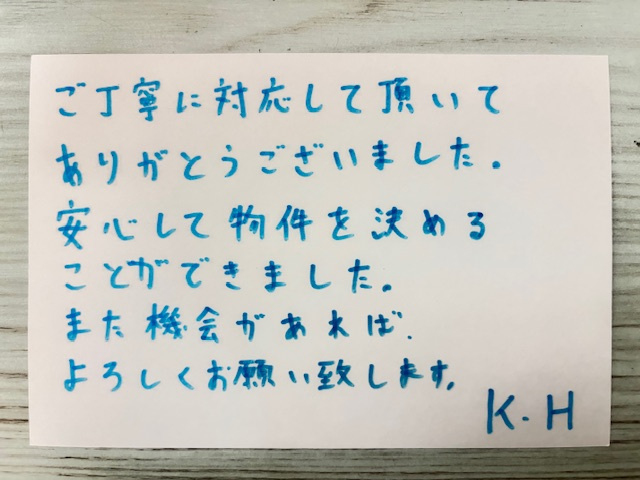 ご丁寧に対応して頂いて
ありがとうございました。
安心して物件を決める
ことができました。
また機会があれば、
よろしくお願い致します。
K.H